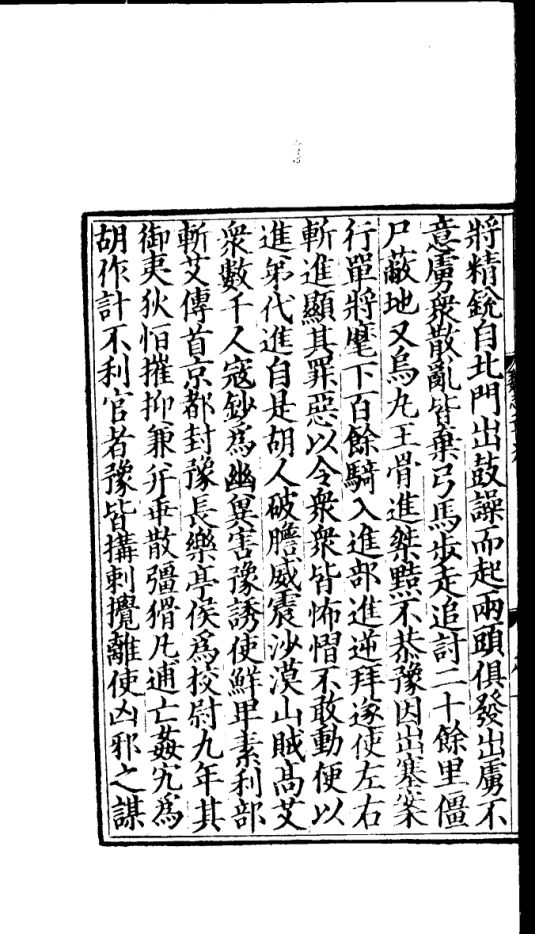 將精銳自北門出鼓譟而起兩頭俱發出虜不
意虜衆散亂皆棄弓馬步走追討二十餘里僵
尸蔽地又烏丸王骨進桀黠不恭豫因出塞案
行單將麾下百餘騎入進部進逆拜遂使左右
斬進顯其罪惡以令衆衆皆怖慴不敢動便以
進弟代進自是胡人破膽威震沙漠山賊高艾
衆數千人寇鈔爲幽冀害豫誘使鮮卑素利部
斬艾傳首京都封豫長樂亭侯爲校尉九年其
御夷狄恒摧抑兼并乖散彊猾凡逋亡姦宄爲
胡作計不利官者豫皆搆刺攪離使凶邪之謀